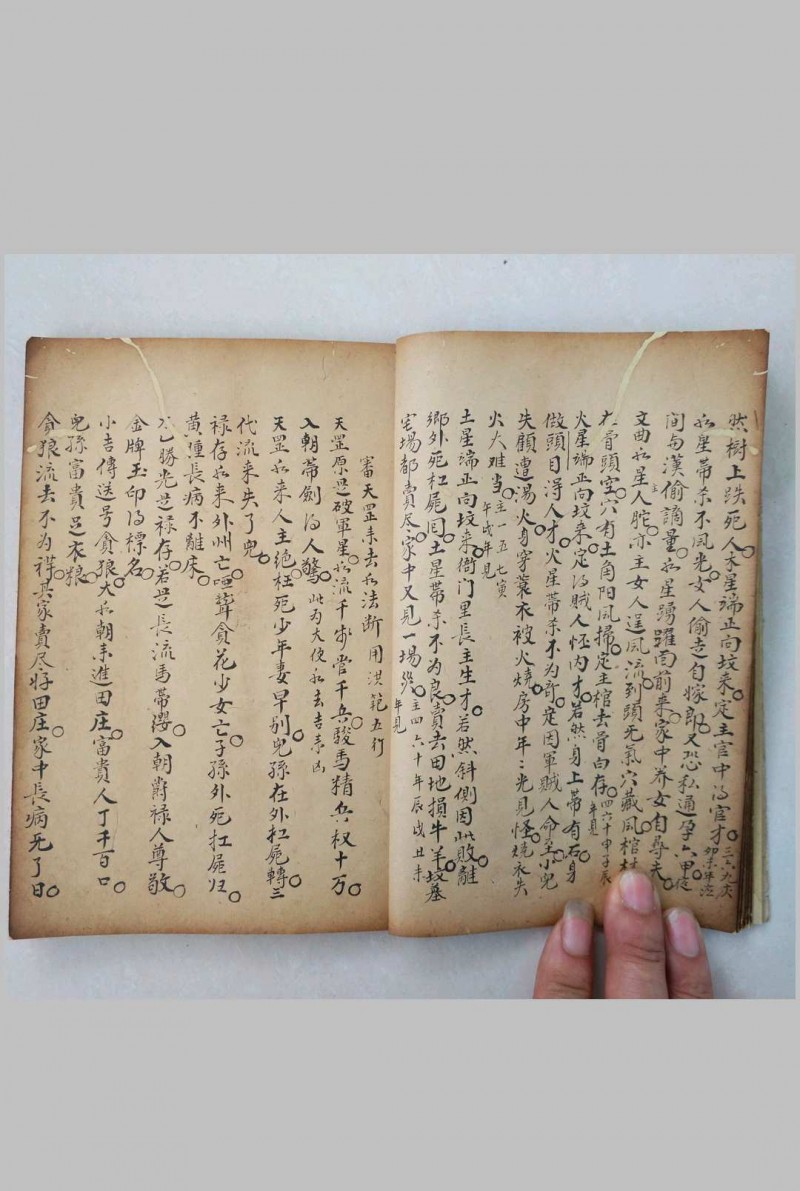 然樹上跌死人木星端正向坟来定主官中得官才三六九亥卯未年应
水星帶杀不風光女人偷走自嫁郎又恐私通孕六甲
問与漢偷謫量水星踴躍面前来家中养女自尋夫
文曲水星人主陀亦主女人逞風流到頭死氣穴藏風棺材
骨頭空穴有土角阳風掃定主棺未骨向存四六十申子辰年見
火星端正向坟来定得賊人怪内才若然身上帶有石身
做頭目得人才火星帶杀不为奇定因軍賊人命兇
失顧遭湯火身穿蓑衣被火燒房中年〻光見怪燒衣失
火大难当主一五七寅午戌年見
土星端正向坟来衙門里長主生才若然斜側因此敗離
鄉外死扛屍囘土星帶杀不为良賣去田地損牛羊坟墓
宅場都賣尽家中又見一場主四六十年辰戌丑未年見
審天罡来去水法断用洪範五行
天罡原是破軍星水流千步管千兵駿馬精兵权十万
入朝帶劍得人驚此为大使水去吉来凶
天罡水来人主絕枉死少年妻早别兒孫在外扛屍轉三
代流来失了兒
禄存水来外州亡喑聾貪花少女亡子孫外死扛屍归
黄腫長病不離床
太乙勝光是禄存若是長流馬帶纓入朝爵禄人尊敬
金牌玉印得標名
小吉傳送号貪狼大水朝来進田庄富貴人丁千百口
兒孫富貴足衣粮
貪狼流去不为祥其家賣尽好田庄家中長病死了日